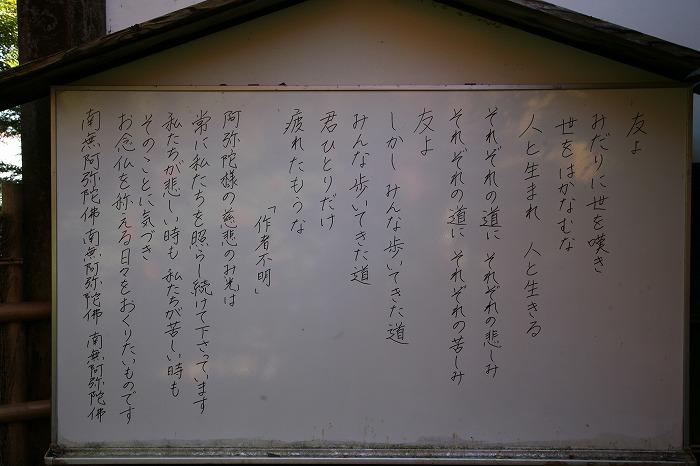 友よ
みだりに世を嘆き
世をはかなむな
人と生まれ 人と生きる
それぞれの道に それぞれの悲しみ
それぞれの道に それぞれの苦しみ
友よ
しかし みんな歩いてきた道
みんな歩いてきた道
君ひとりだけ
疲れたもうな
「作者不明」
阿弥陀様の慈悲のみ光は
常に私たちを照らし続けて下さっています
私たちが悲しい時も 私たちが苦しい時も
そのことに気づき
お念仏を称える日々をおくりたいものです
南無阿弥陀佛 南無阿弥陀佛 南無阿弥陀佛